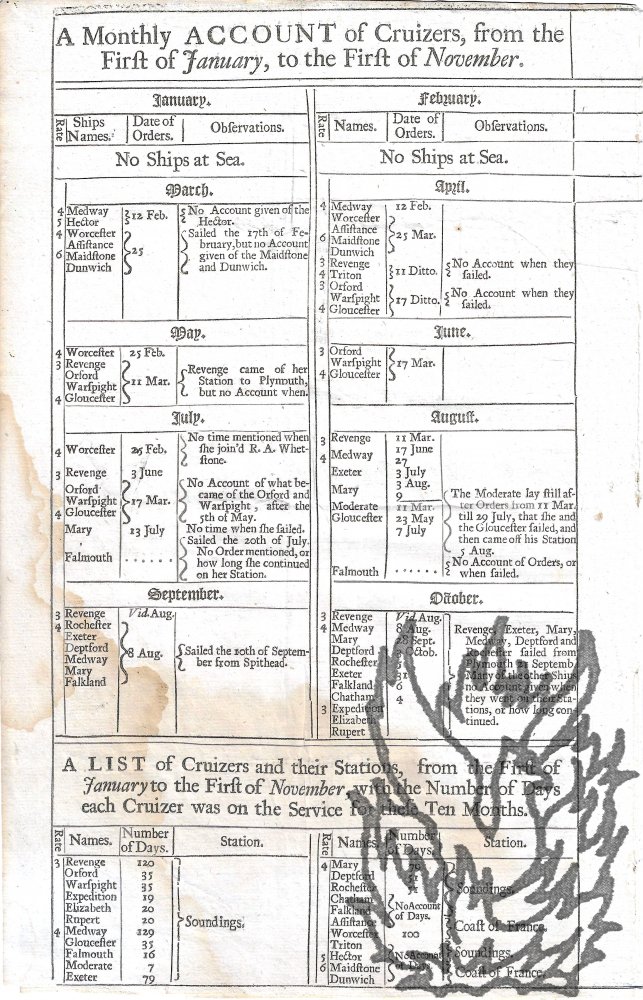 A Monthly ACCOUNT of Cruizers, from the
Firſt of January, to the Firſt of November.
January.
Rate Ships Names. Date of Orders. Obſervations.
No Ships at Sea.
February.
Rate Names. Date of Orders. Obſervations.
No Ships at Sea.
March.
4 Medway } 12 Feb. { No Account given of the
5 Hector Hector.
4 Worceſter } 25 { Sailed the 17th of Fe-
Aſſiſtance bruary, but no Account
6 Maidſtone given of the Maidſtone
Dunwich and Dunwich.
April.
4 Medway 12 Feb.
Worceſter
Aſſiſtance } 25 Mar.
6 Maidſtone
Dunwich
3 Revenge } 11 Ditto. { No Account when they
4 Triton ſailed.
3 Orford
Warſpight } 17 Ditto. { No Account when they
4 Glouceſter ſailed.
May.
4 Worceſter 25 Feb.
3 Revenge
Orford } 11 Mar. { Revenge came of her
Warſpight Station to Plymouth,
4 Glouceſter but no Account when.
June.
3 Orford
Warſpight } 17 Mar.
4 Glouceſter
July.
4 Worceſter 25 Feb. { No time mentioned when
ſhe join'd R. A. Whet-
ſtone.
3 Revenge 3 June
Orford { No Account of what be-
Warſpight } 17 Mar. came of the Orford and
4 Glouceſter Warſpight, after the
5th of May.
Mary 13 July No time when ſhe ſailed.
Falmouth ...... { Sailed the 20th of July.
No Order mentioned, or
how long ſhe continued
on her Station.
August.
3 Revenge 11 Mar.
4 Medway 17 June
27
Exeter 3 July
Mary 3 Aug.
9
Moderate 11 Mar. { The Moderate lay ſtill af-
Glouceſter 23 May ter Orders from 11 Mar.
7 July till 29 July, that ſhe and
the Glouceſter ſailed, and
then came off his Station
5 Aug.
Falmouth ...... { No Account of Orders, or
when ſailed.
September.
3 Revenge Vid. Aug.
4 Rocheſter
Exeter
Deptford } 8 Aug. { Sailed the 10th of Septem-
Medway ber from Spithead.
Mary
Falkland
October.
3 Revenge Vid. Aug.
4 Medway 8 Aug. Revenge, Exeter, Mary,
Mary 28 Sept. Medway, Deptford and
Deptford Octob. ſailed from
Rocheſter Plymouth Septemb.
Exeter 31
Falkland 6 no Account given when
Chatham 4 they went on their Sta-
3 Expedition tions, or how long con-
Elizabeth tinued.
Rupert
A LIST of Cruizers and their Stations, from the Firſt of
January to the Firſt of November, with the Number of Days
each Cruizer was on the Service for theſe Ten Months.
Rate Names. Number of Days. Station.
3 Revenge 120
Orford 35
Warſpight 35
Expedition 19
Elizabeth 20
Rupert 20 } Soundings.
4 Medway 129
Glouceſter 35
Falmouth 16
Moderate 7
Exeter 79
Rate Names. Number of Days. Station.
4 Mary
Deptford
Rocheſter Soundings.
Chatham
Falkland } No Account of Days.
Aſſiſtance Coaſt of France.
Worceſter 100
Triton
5 Hector No Account of Days. Soundings.
6 Maidſtone Coaſt of France.
Dunwich